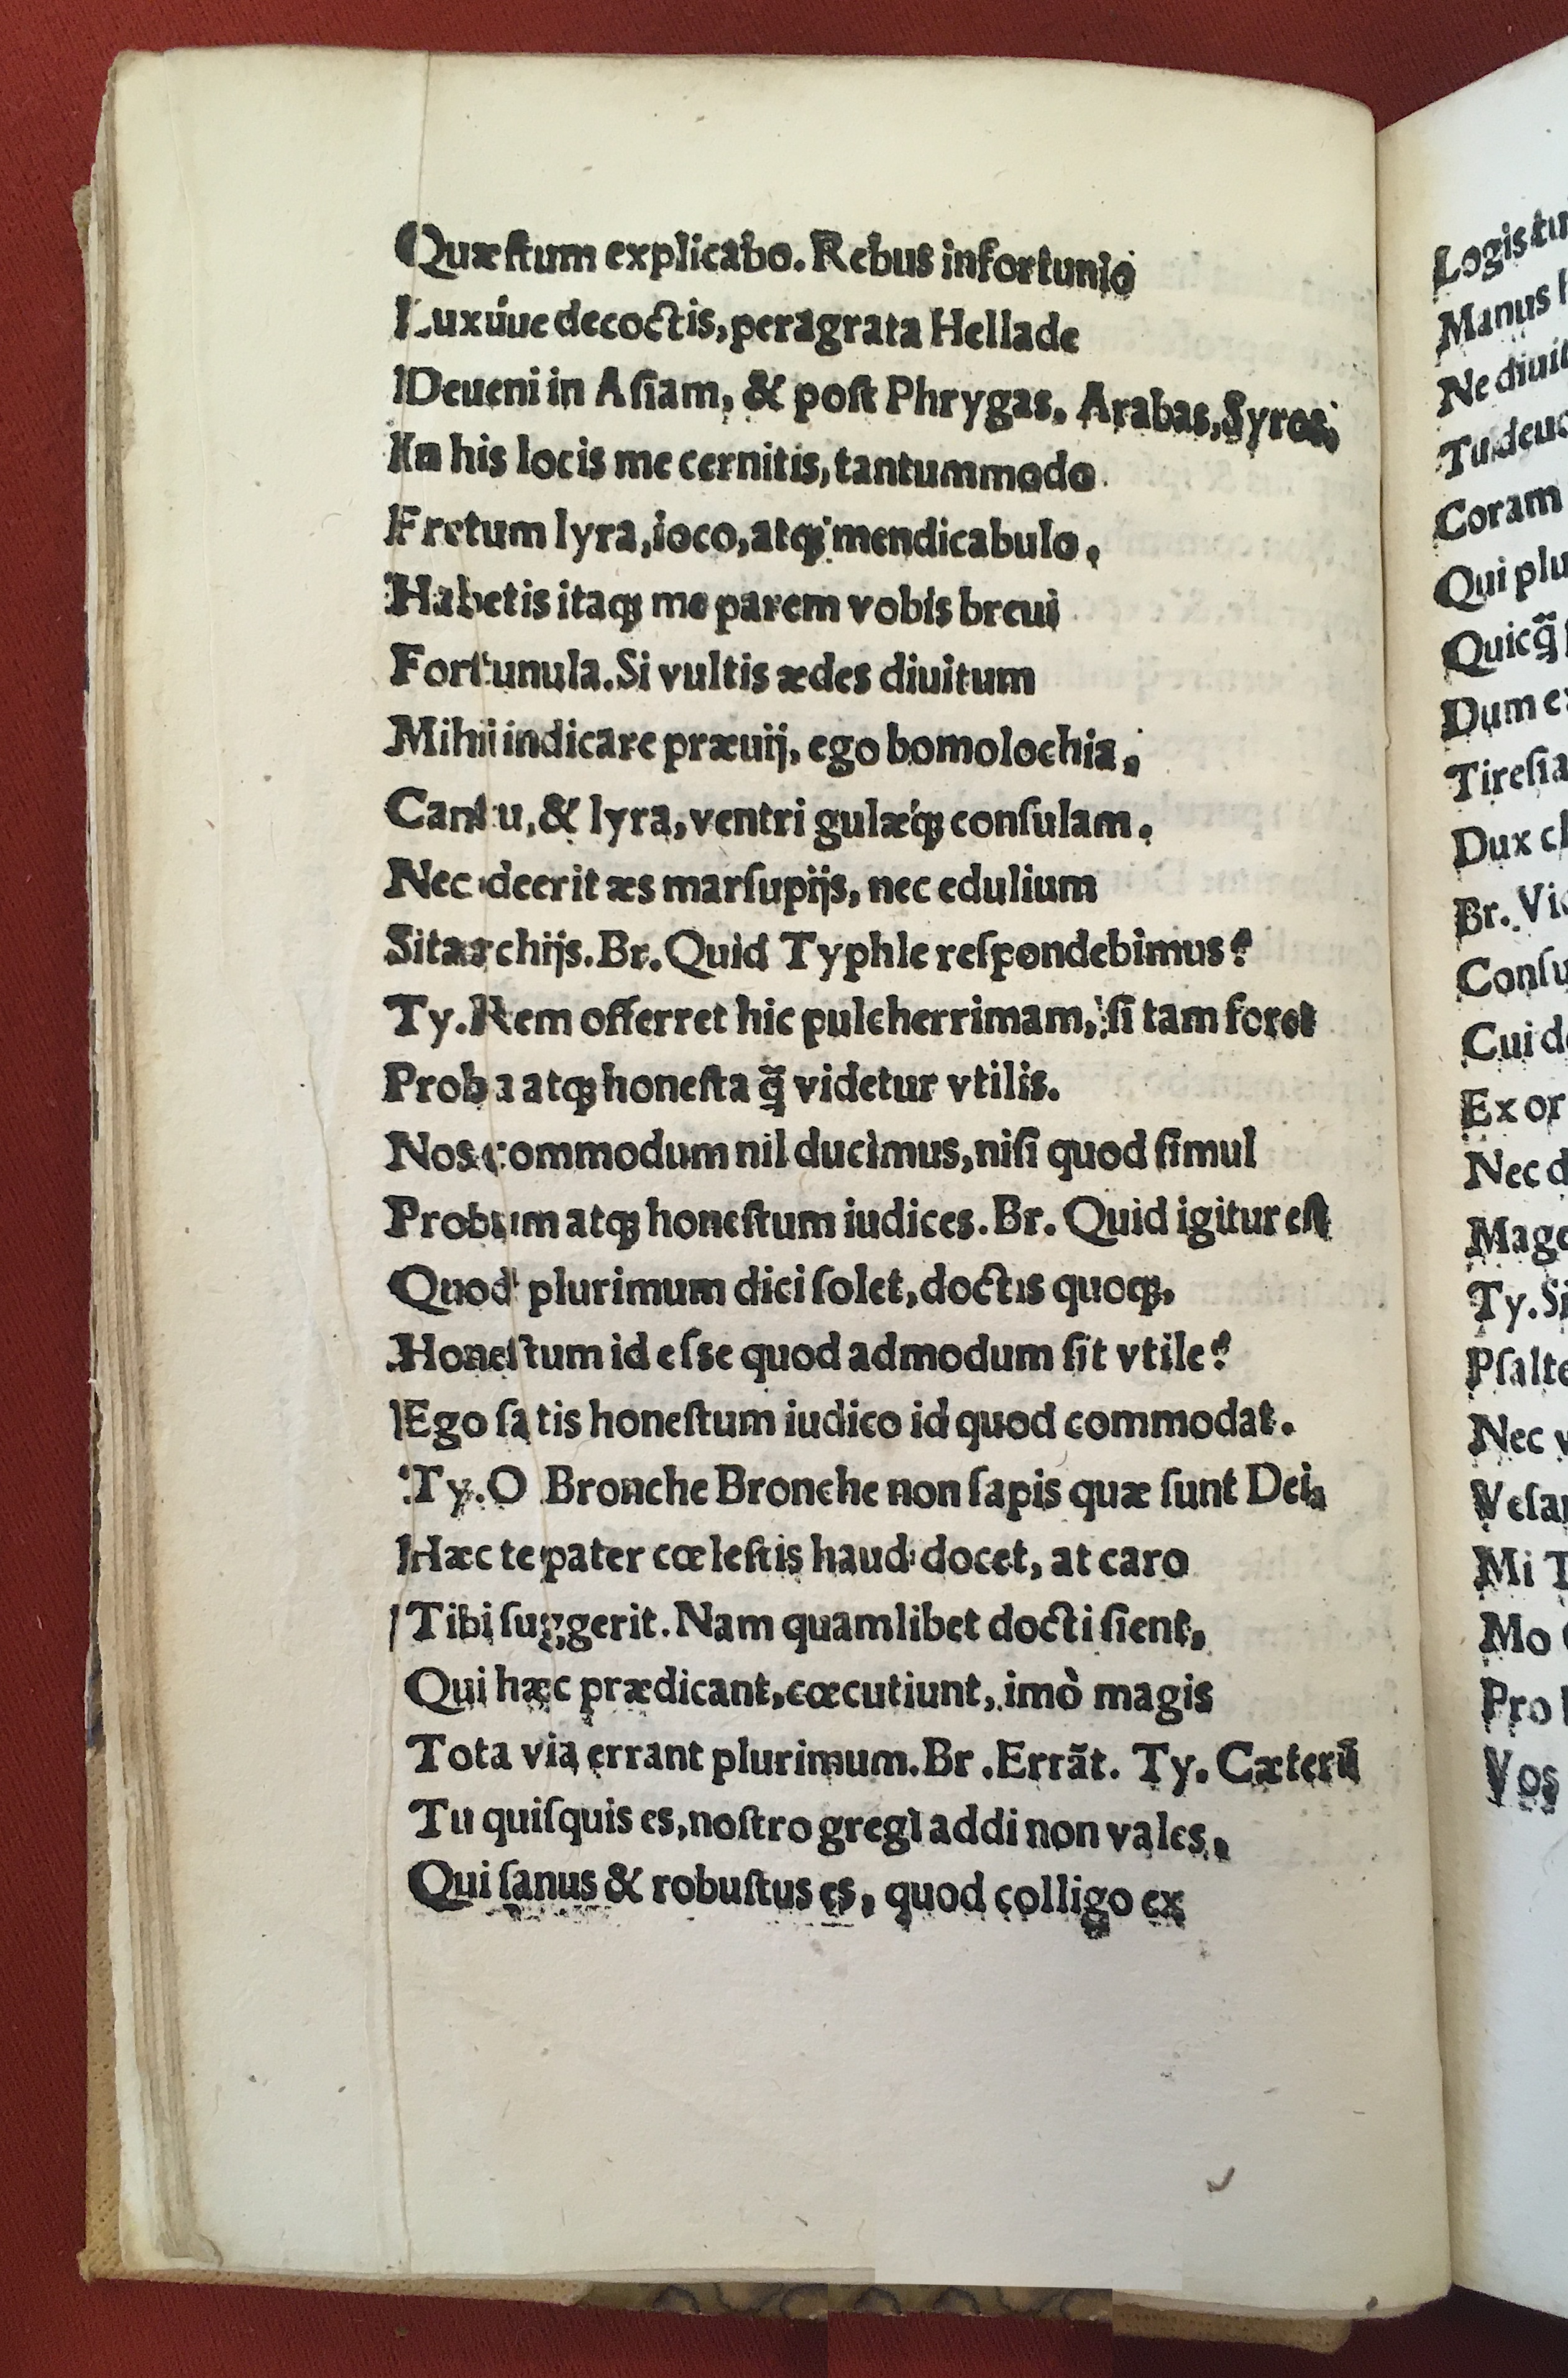 Quæſtum explicabo. Rebus infortunio
Luxúue decoctis, peragrata Hellade
Deueni in Aſiam, & poſt Phrygas, Arabas, Syros,
In his locis me cernitis, tantummodo
Fretum lyra, ioco, atqꝫ mendicabulo,
Habetis itaqꝫ me parem vobis breui
Fortunula. Si vultis ædes diuitum
Mihi indicare præuij, ego bomolochia,
Cantu, & lyra, ventri gulǽqꝫ conſulam.
Nec deerit æs marſupijs, nec edulium
Sitarchijs. Br. Quid Typhle reſpondebimus?
Ty. Rem offerret hic pulcherrimam, ſi tam foret
Proba atqꝫ honeſta q̃ videtur vtilis.
Nos commodum nil ducimus, niſi quod ſimul
Probum atqꝫ honeſtum iudices. Br. Quid igitur eſt
Quod plurimum dici ſolet, doctis quoqꝫ,
Honeſtum id eſse quod admodum ſit vtile?
Ego ſatis honeſtum iudico id quod commodat.
Ty. O Bronche Bronche non ſapis quæ ſunt Dei,
Hæc te pater cœleſtis haud docet, at caro
Tibi ſuggerit. Nam quamlibet docti ſient,
Qui hæc prædicant, cœcutiunt, imò magis
Tota via errant plurimum. Br. Errãt. Ty. Cæterũ
Tu quiſquis es, noſtro gregi addi non vales,
Qui ſanus & robuſtus es, quod colligo ex
Manus
Ne
Coram
Qui
Dum
Dux
Br.
Ex
Nec
Ty.
Nec
Mi
Mo
Pro
Vos